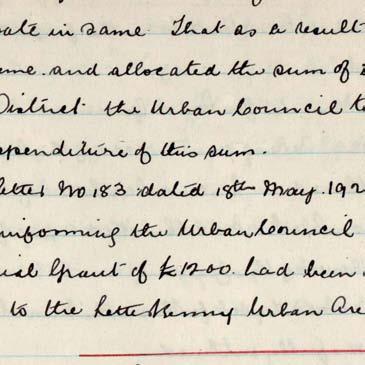 in same. That as a result
and allocated the sum of
District the Urban Council
expenditure of this sum.
Letter No 183 dated 18th May. 192
informing the Urban Council
Grant of £1200. had been
to the Letterkenny Urban Are